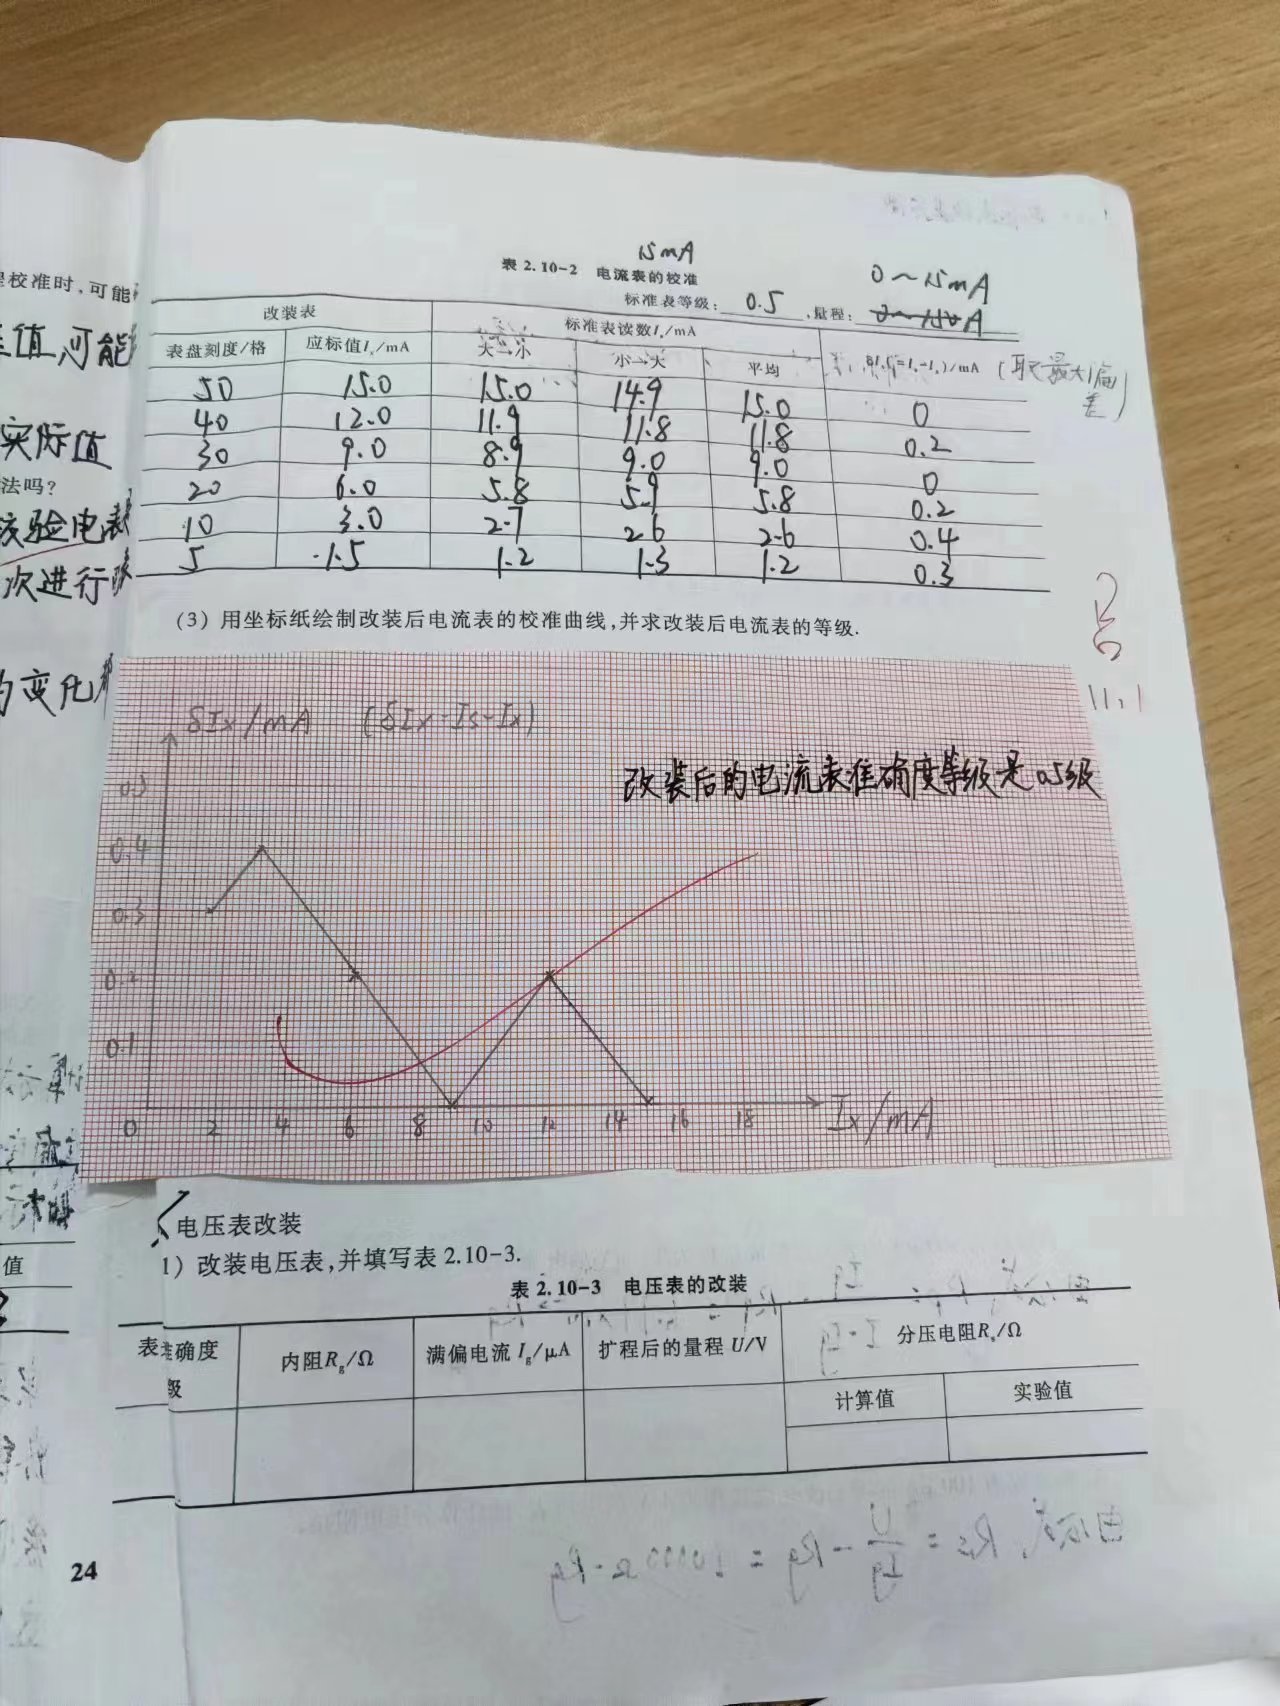 程校准时,可能
值可能
实际值
法吗?
校验电表
次进行改
的变化
15mA
表 2.10-2 电流表的校准
0～15mA
标准表等级: 0.5 ,量程:
改装表
标准表读数Is/mA
表盘刻度/格 应标值Ix/mA 大→小 小→大 平均 δIx(=Is-Ix)/mA (取最大偏差)
50 15.0 15.0 14.9 15.0 0
40 12.0 11.9 11.8 11.8 0.2
30 9.0 8.9 9.0 9.0 0
20 6.0 5.8 5.9 5.8 0.2
10 3.0 2.7 2.6 2.6 0.4
5 1.5 1.2 1.3 1.2 0.3
(3) 用坐标纸绘制改装后电流表的校准曲线,并求改装后电流表的等级.
11.1
δIx/mA (δIx=Is-Ix)
改装后的电流表准确度等级是0.5级
0.4
0.3
0.2
0.1
0 2 4 6 8 10 12 14 16 18 Ix/mA
电压表改装
1) 改装电压表,并填写表 2.10-3.
表 2.10-3 电压表的改装
表准确度级 内阻Rg/Ω 满偏电流 Ig/μA 扩程后的量程 U/V 分压电阻Rs/Ω
计算值 实验值
值
24